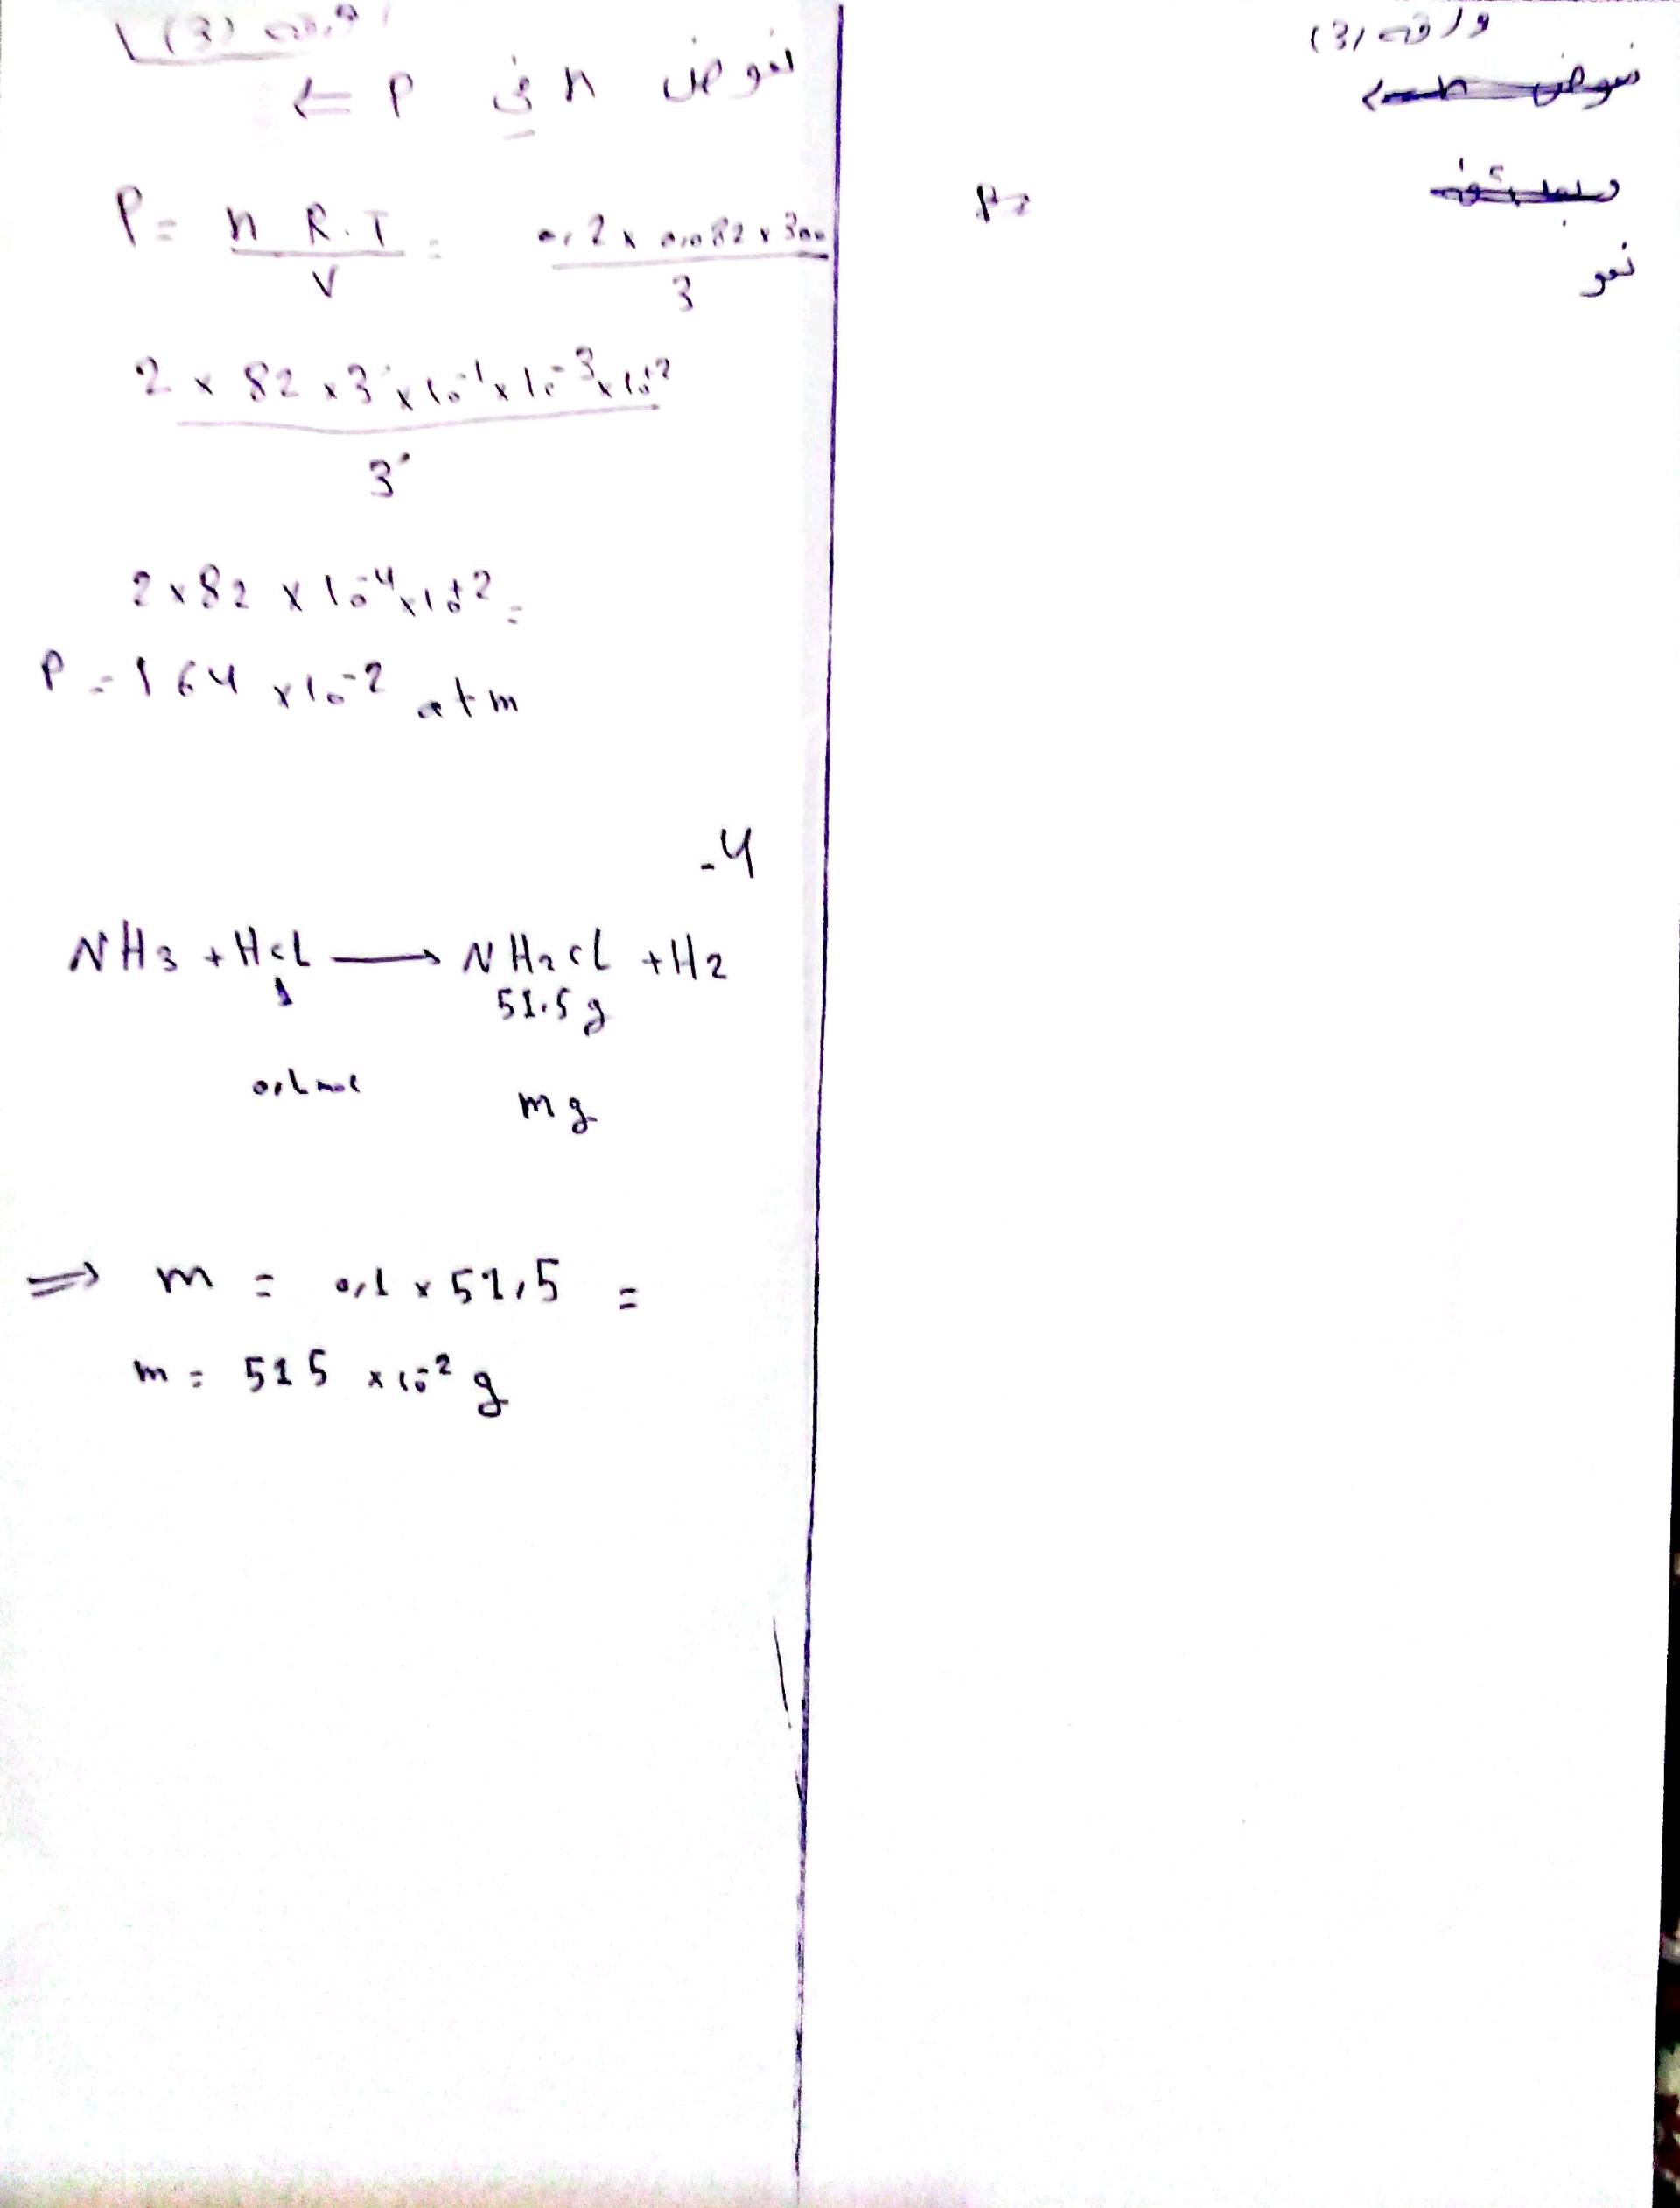 ورقة (3)
نعوض n في P ⇐
P = n R.T / V = 0,2 x 0,082 x 300 / 3
2 x 82 x 3 x 10^-1 x 10^-3 x 10^+2 / 3
2 x 82 x 10^-4 x 10^+2 =
P = 164 x 10^-2 atm
-4
NH3 + HCl → NH2Cl + H2
1 51.5 g
0,1 mol m g
⇒ m = 0,1 x 51,5 =
m = 515 x 10^-2 g
ورقة (3)
نعوض n
نعو